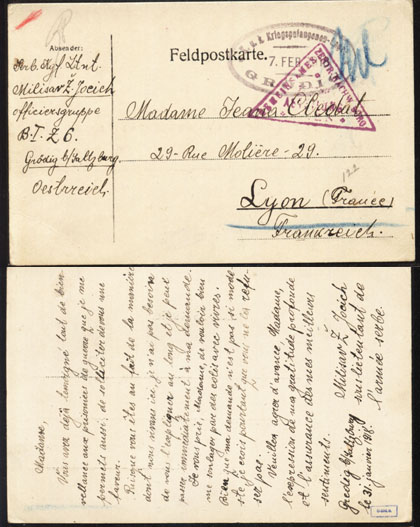 Feldpostkarte.
Absender:
Serb. Kgf. Ltnt.
Milisav Ž. Jocich
Officiersgruppe
B-I-Z 6.
Grödig b/Saltzburg
Oestrreich.
K. u. k. Kriegsgefangenen-
7. FEB.
GRÖDI
Madame Jeanne
29-Rue Molière-29.
Lyon (France)
Frankreich.
122
Madame,
Vous avez déjà témoigné tant de bien-
veillance aux prisonniers de guerre que je me
permets aussi de solliciter de vous une
faveur.
Puisque vous êtes au fait de la manière
dont nous vivons ici je n'ai pas besoin
de vous l'expliquer au long et je peux
passer immédiatement à ma demande.
Je vous prie, Madame, de vouloir bien
me soulager par des colis avec vivres.
Bien que ma demande n'est pas si mode-
ste je crois pourtant que vous ne la refu-
sez pas.
Veuillez agréer d'avance Madame,
l'expression de ma gratitude profonde
et l'assurance de mes meilleurs
sentiments.
Milisav Ž. Jocich
Grödig b/Saltzburg sous-lieutenant de
le 31 janvier 1918. l'armée serbe.